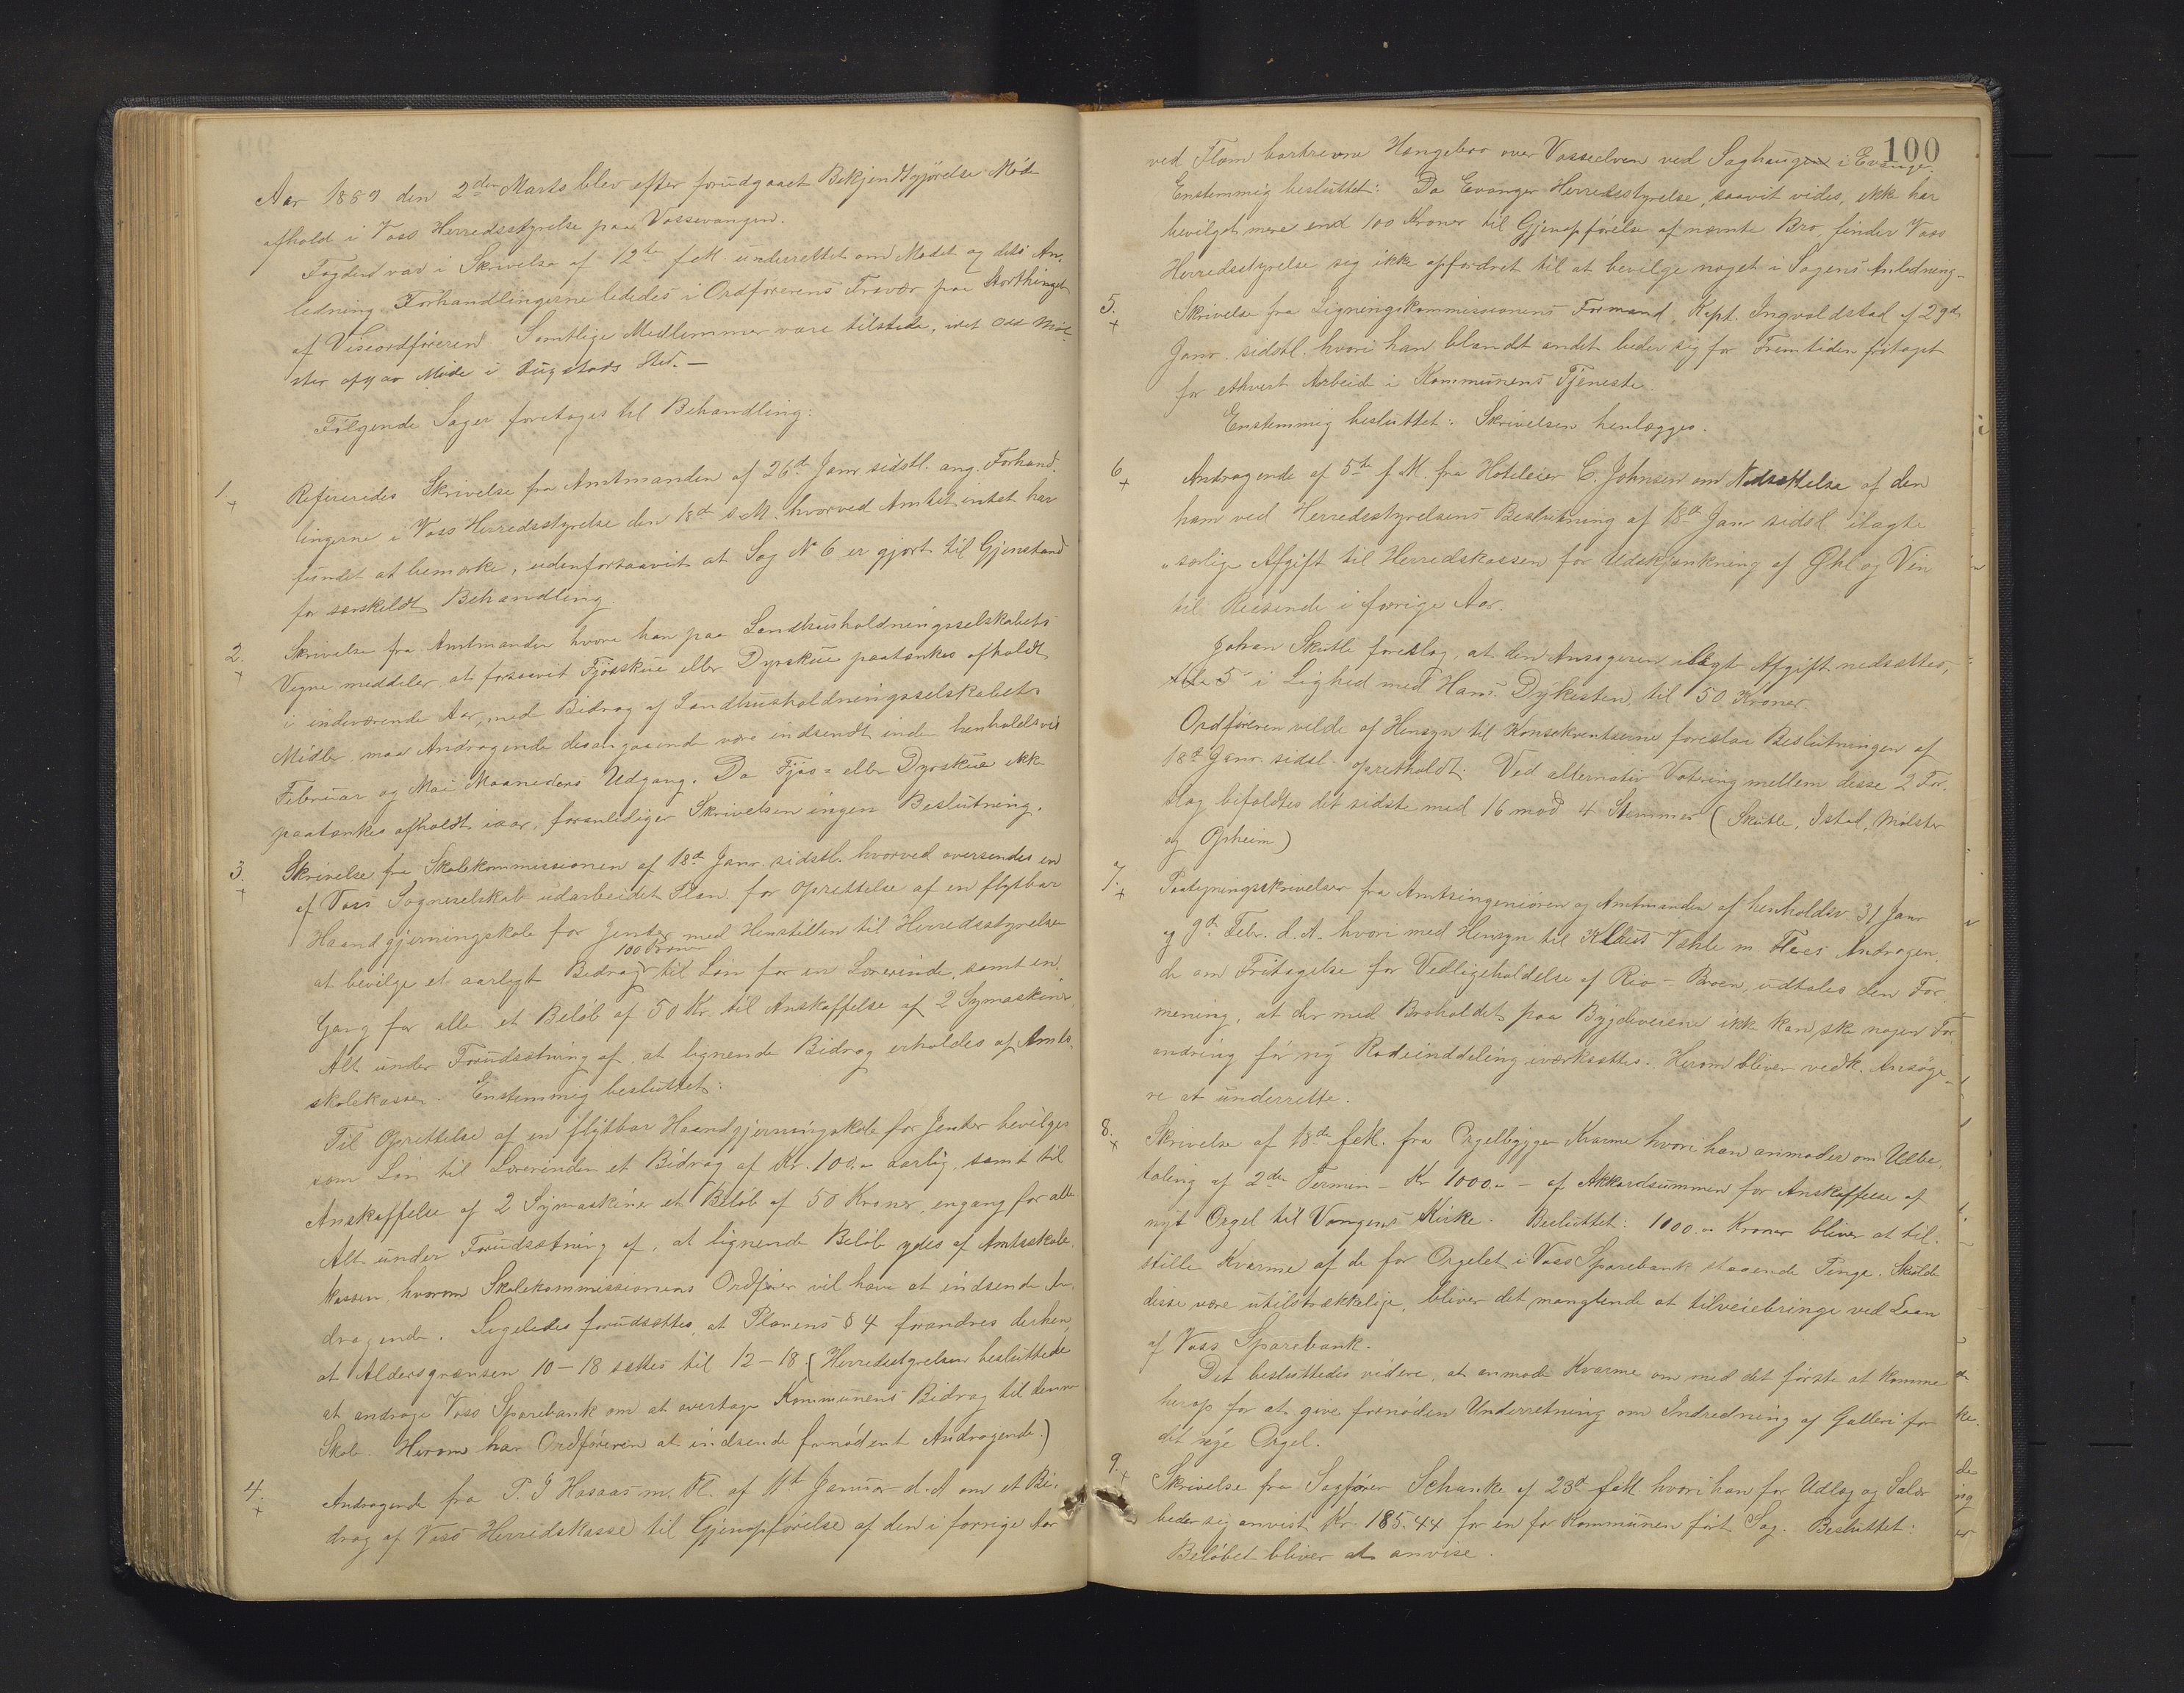 Aar 1889 den 2den Marts blev efter forudgaaet Bekjendtgjörelse Möde
afhold i Voss Herredsstyrelse paa Vossevangen.
Fogden var i Skrivelse af 12te f M underrettet om Mödet og dets An-
ledning. Forhandlingerne lededes i Ordförerens Fravær paa Storthinget
af Viseordföreren. Samtlige Medlemmer vare tilstede, idet Odd Möl-
ster afgav Möde i Rugstads Sted. —
Fölgende Sager foretages til Behandling:
1.
+
Refereredes Skrivelse fra Amtmanden af 26d Janr sidstl. ang. Forhand-
lingerne i Voss Herredsstyrelse den 18d s. M. hvorved Amtet intet har
fundet at bemærke, udenforsaavit at Sag No 6 er gjort til Gjenstand
for særskildt Behandling.
2.
+
Skrivelse fra Amtmanden hvori han paa Landhusholdningsselskabets
Vegne meddeler at forsaavit Fjösskue eller Dyrskue paatænkes afholdt
i indeværende Aar, med Bidrag af Landhusholdningsselskabets
Midler, maa Andragende desangaaende være indsendt inden henholdsvis
Februar og Mai Maaneders Udgang. Da Fjös- eller Dyrskue ikke
paatænkes afholdt iaar, foranlediger Skrivelsen ingen Beslutning.
3.
+
Skrivelse fra Skolekommissionen af 18d Janr. sidstl. hvorved oversendes en
af Voss Sogneselskab udarbeidet Plan for Oprettelse af en flytbar
Haandgjerningskole for Jenter med Henstillen til Herredsstyrelsen
100 Kroner
at bevilge et aarlegt Bidrag til Lön for en Lærerinde, samt en
Gang for alle et Belöb af 50 Kr. til Anskaffelse af 2 Symaskiner,
Alt under Forudsætning af, at lignende Bidrag erholdes af Amts-
skolekassen. Enstemmig besluttet:
Til Oprettelse af en flytbar Haandgjerningskole for Jenter bevilges
som Lön til Lærerinden et Bidrag af Kr. 100.„ aarlig, samt til
Anskaffelse af 2 Symaskiner et Belöb af 50 Kroner, engang for alle
Alt under Forudsætning af, at lignende Belöb ydes af Amtsskole-
kassen, hvorom Skolekommissionens Ordförer vil have at indsende An-
dragende. Ligeledes forudsættes, at Planens § 4 forandres derhen,
at Aldersgrænsen 10 – 18 sættes til 12 – 18 (Herredsstyrelsen besluttede
at andrage Voss Sparebank om at overtage Kommunens Bidrag til denne
Skole. Herom har Ordföreren at indsende fornödent Andragende.)
4.
+
Andragende fra P. J Hasaas m. Fl. af 11te Januar d. A om et Bi-
drag af Voss Herredskasse til Gjenopförelse af den i forrige Aar
100
ved Flom bortrevne Hængebro over Vosseelven ved Saghaugen i Evanger.
Enstemmig besluttet: Da Evanger Herredsstyrelse, saavit vides, ikke har
bevilget mere end 100 Kroner til Gjenopförelse af nævnte Bro, finder Voss
Herredsstyrelse sig ikke opfordret til at bevilge noget i Sagens Anledning.
5.
+
Skrivelse fra Ligningskommissionens Formand, Kapt. Ingvoldstad af 29d
Janr. sidstl. hvori han blandt andet beder sig for Fremtiden fritaget
for ethvert Arbeide i Kommunens Tjeneste.
Enstemmig besluttet: Skrivelsen henlægges.
6
+
Andragende af 5te f M. fra Hoteleier C. Johnsen om Nedsættelse af den
ham ved Herredsstyrelsens Beslutning af 18d Janr sidstl ilagte
særlige Afgift til Herredskassen for Udskjænkning af Öhl og Vin
til Reisende i forrige Aar.
Johan Skutle foreslog, at den Ansögeren ilagt Afgift nedsættes,
i Lighed med Hans Dykesten, til 50 Kroner.
Ordföreren vilde af Hensyn til Konsekventserne foreslaa Beslutningen af
18d Janr. sidstl. opretholdt. Ved alternativ Votering mellem disse 2 For-
slag bifaldtes det sidste med 16 mod 4 Stemmer (Skutle, Istad, Mölster
og Opheim)
7.
+
Paategningsskrivelser fra Amtsingeniören og Amtmanden af henholdsv. 31 Janr
og 9d Febr. d. A. hvori med Hensyn til Klaus Væhle m. Fleres Andragen-
de om Fritagelse for Vedligeholdelse af Rio-Broen, udtales den For-
mening, at der med Broholdet paa Bygdeveiene ikke kan ske nogen For-
andring för ny Rodeinddeling iværksættes. Herom bliver vedk. Ansöge-
re at underrette.
8.
+
Skrivelse af 18de f M. fra Orgelbygger Kvarme hvori han anmoder om Udbe-
taling af 2den Termin – Kr 1000.„ – af Akkordsummen for Anskaffelse af
nyt Orgel til Vangens Kirke. Besluttet: 1000 „ Kroner bliver at til-
stille Kvarme af de for Orgelet i Voss Sparebank staaende Penge. Skulde
disse være utilstrækkelige, bliver det manglende at tilveiebringe ved Laan
af Voss Sparebank.
Det besluttedes videre, at anmode Kvarme om med det förste at komme
herop for at give fornöden Underretning om Indredning af Galleri for
det nye Orgel.
9.
+
Skrivelse fra Sagförer Schanke af 23d f M hvori han for Udlæg og Salær
beder sig anvist Kr. 185.44 for en for Kommunen fört Sag. Besluttet:
Belöbet bliver at anvise.